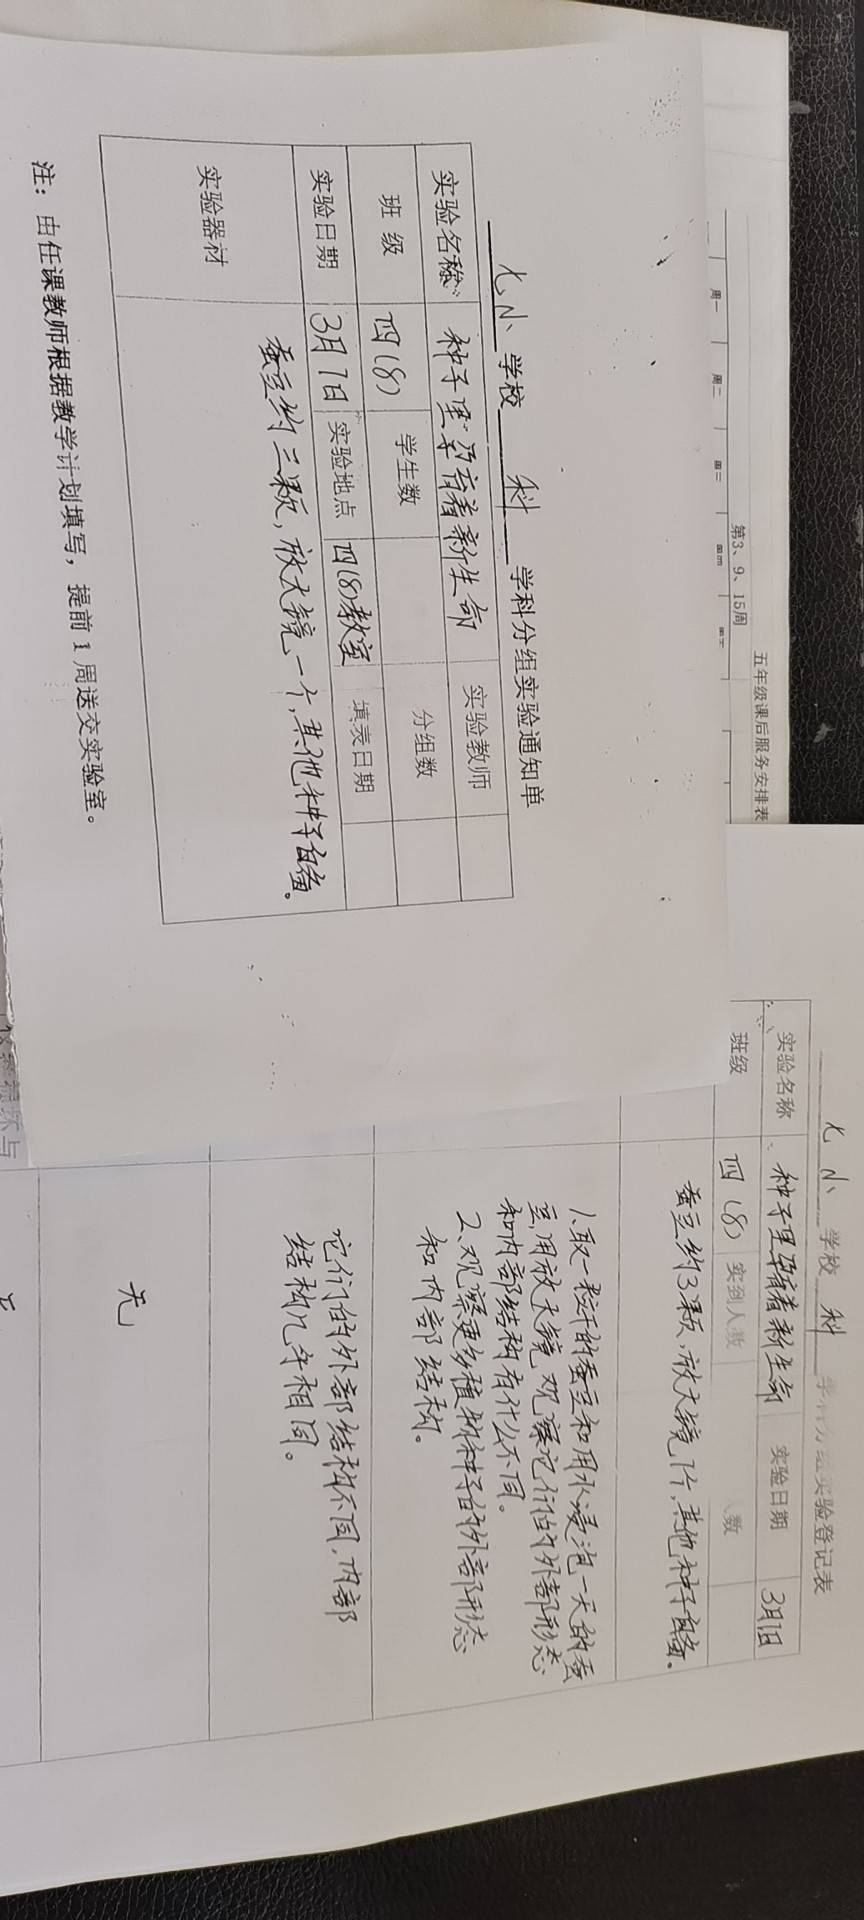 七小 学校 科 学科分组实验通知单
实验名称 种子里孕育着新生命 实验教师
班 级 四(8) 学生数 分组数
实验日期 3月1日 实验地点 四(8)教室 填表日期
实验器材 蚕豆约三颗,放大镜一个,其他种子自备。
注:由任课教师根据教学计划填写,提前1周送交实验室。
五年级课后服务安排表
第3、9、15周
周一 周二 周三 周四
七小 学校 科 学科分组实验登记表
实验名称 种子里孕育着新生命 实验日期 3月1日
班级 四(8) 实到人数 数
蚕豆约3颗,放大镜1个,其他种子自备。
1、取一粒干的蚕豆和用水浸泡一天的蚕
豆,用放大镜观察它们的外部形态
和内部结构有什么不同。
2、观察更多植物种子的外部形态
和内部结构。
它们的外部结构不同,内部
结构几乎相同。
无